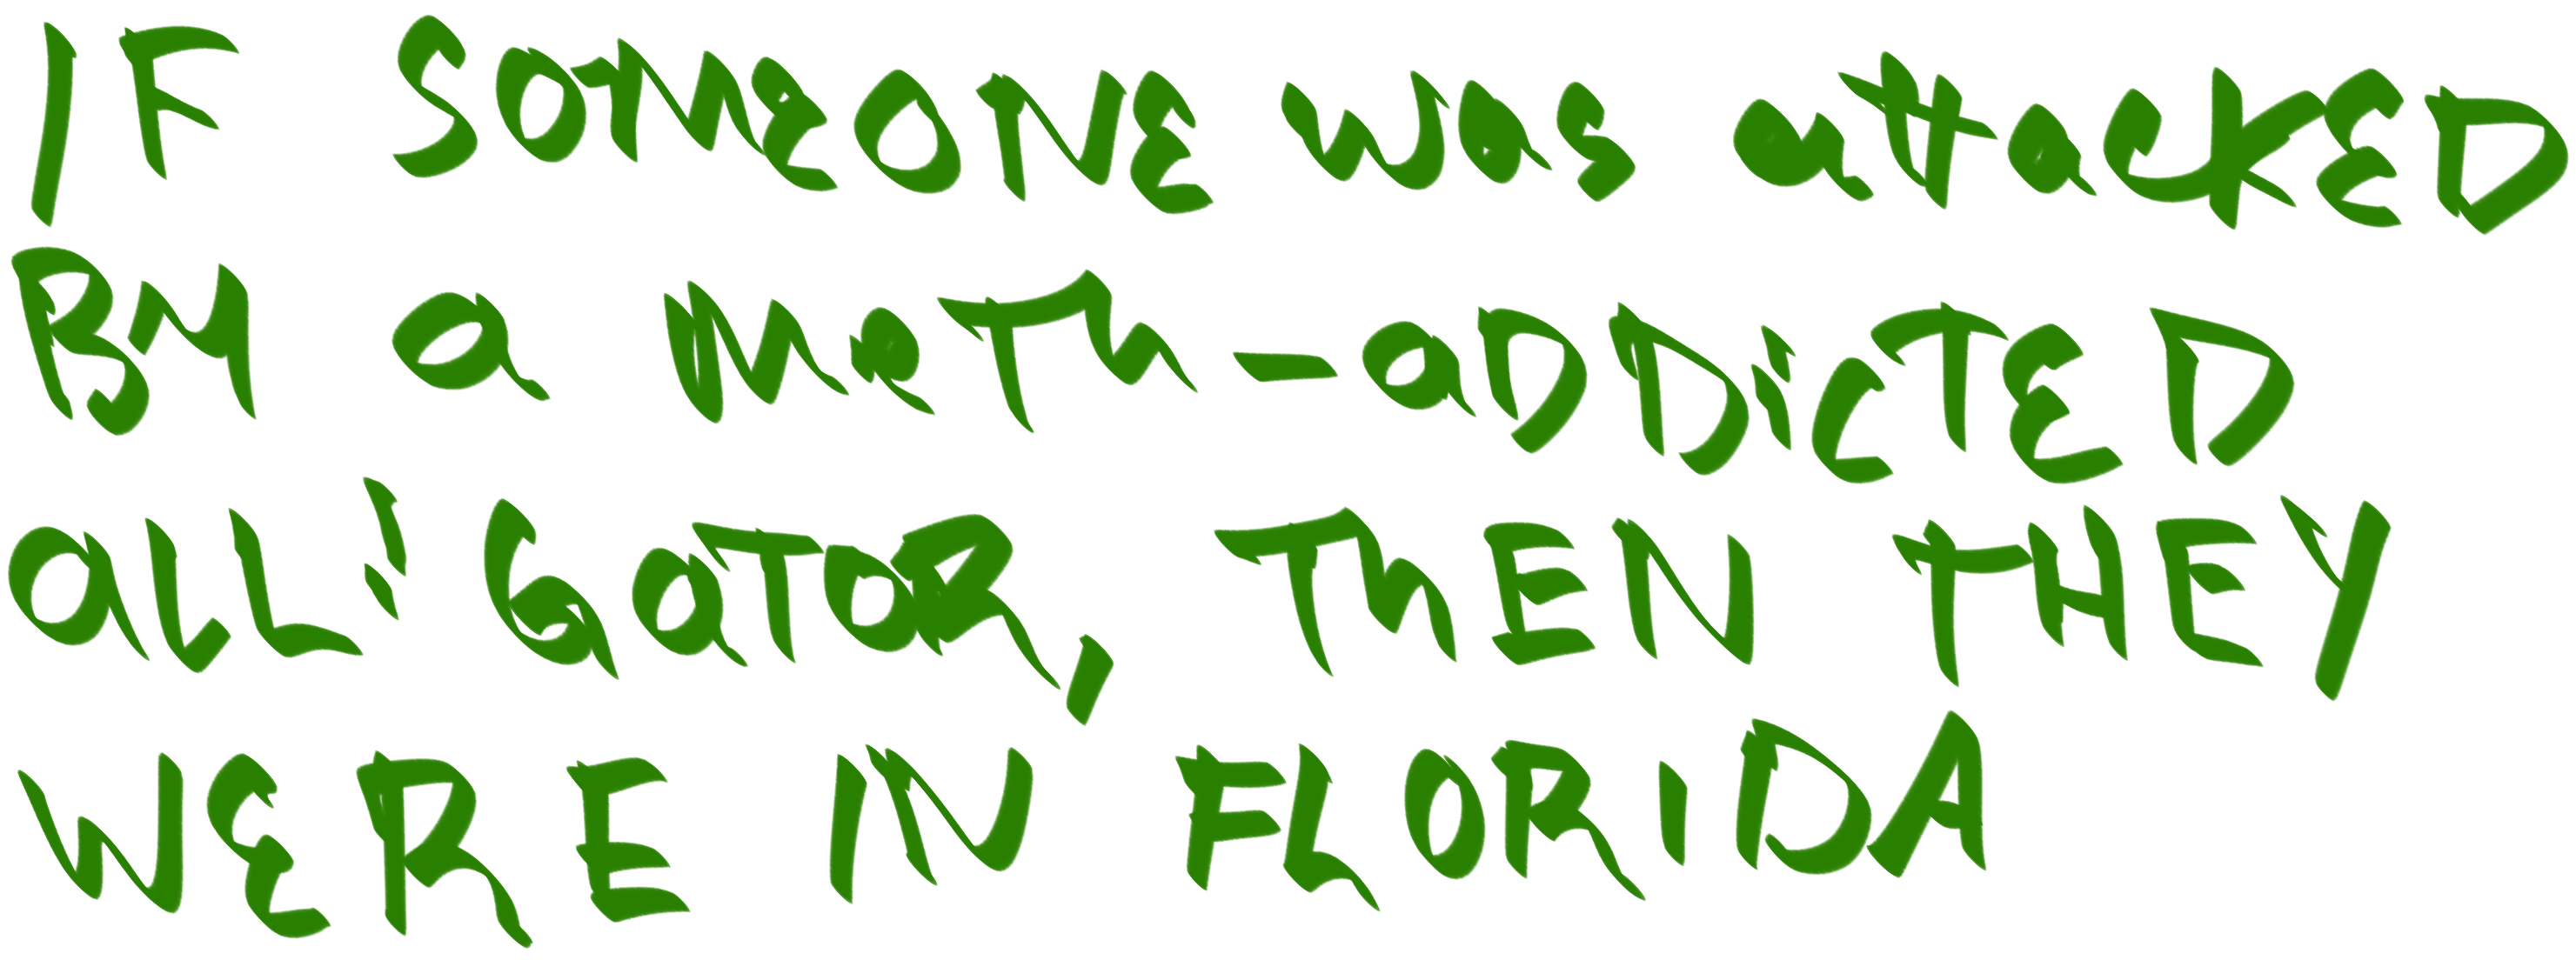 IF SOMEONE was attacKED
BY a meTh-aDDicTED
aLLiGaTOR, ThEN THEY
WERE IN FLORIDA